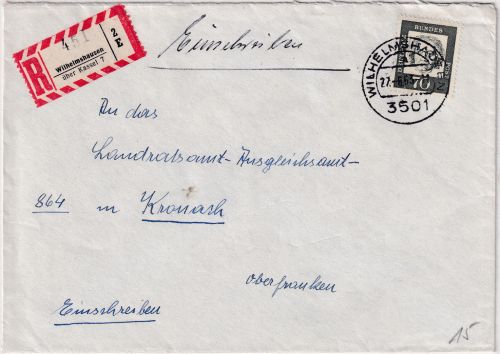 R
451
2
E
Wilhelmshausen
über Kassel 7
Einschreiben
WILHELMSHAUSEN
3501
70
An das
Landratsamt-Ausgleichsamt-
864 in Kronach
Oberfranken
Einschreiben
15